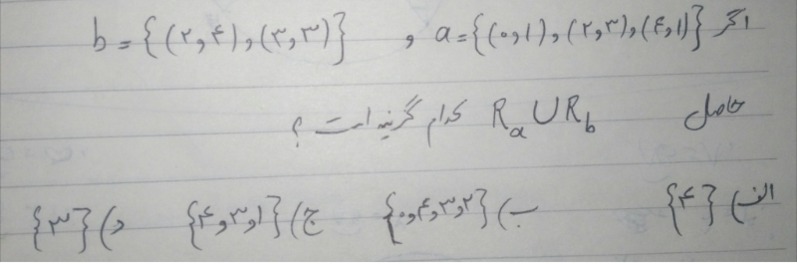 اگر a={(۰,۱),(۲,۳),(۴,۱)} و b={(۲,۴),(۳,۳)}
حاصل R_a ∪ R_b کدام گزینه است ؟
الف) {۴} ب) {۰,۴,۳,۲} ج) {۴,۳,۱} د) {۳}